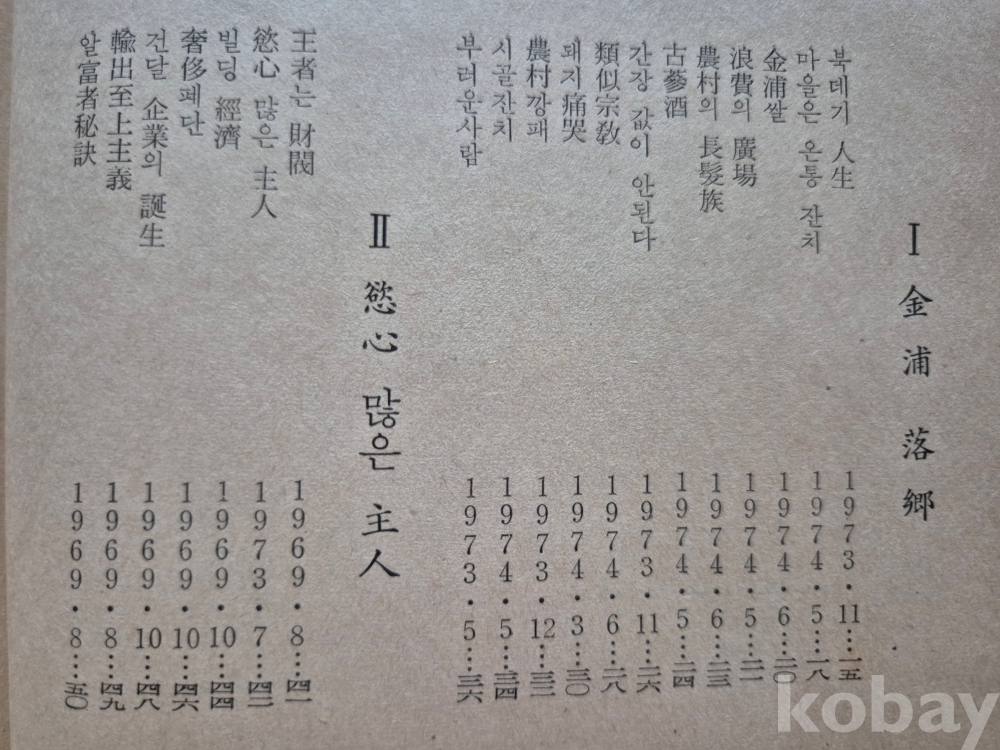 Ⅰ 金浦落郷
북데기 人生 1973·11…一五
마을은 온통 잔치 1974·5…一八
金浦쌀 1974·6…二〇
浪費의 廣場 1974·5…二一
農村의 長髮族 1974·6…二三
古蔘酒 1974·5…二四
간장 값이 안된다 1973·11…二六
類似宗敎 1974·6…二八
돼지痛哭 1974·3…三〇
農村깡패 1973·12…三二
시골잔치 1974·5…三四
부러운사람 1973·5…三六
Ⅱ 慾心 많은 主人
王者는 財閥 1969·8…四一
慾心 많은 主人 1973·7…四二
빌딩 經濟 1969·10…四四
奢侈폐단 1969·10…四六
건달 企業의 誕生 1969·10…四八
輸出至上主義 1969·8…四九
알富者秘訣 1969·8…五〇
kobay